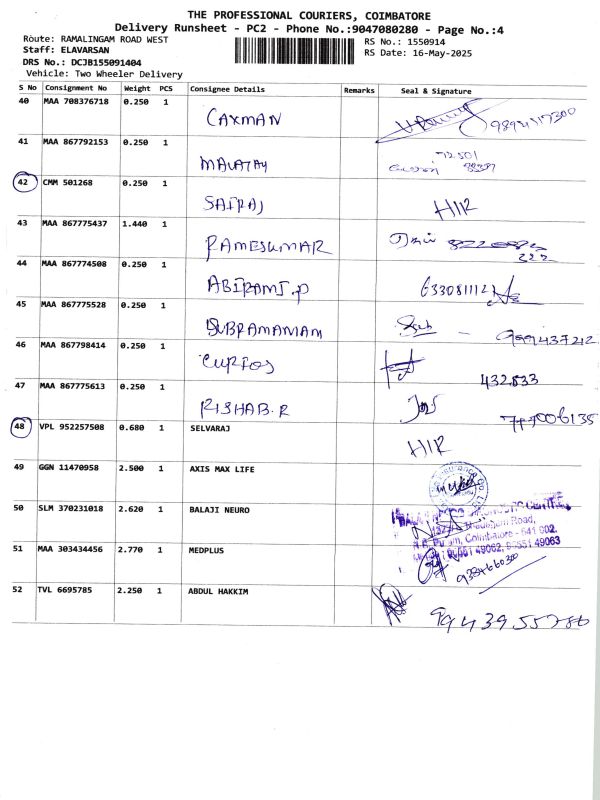 THE PROFESSIONAL COURIERS, COIMBATORE
Delivery Runsheet - PC2 - Phone No.:9047080280 - Page No.:4
Route: RAMALINGAM ROAD WEST
RS No.: 1550914
Staff: ELAVARSAN
RS Date: 16-May-2025
DRS No.: DCJB155091404
Vehicle: Two Wheeler Delivery
S No Consignment No Weight PCS Consignee Details Remarks Seal & Signature
40 MAA 708376718 0.250 1
CAXMAN
41 MAA 867792153 0.250 1
MALATHY
42 CMM 501268 0.250 1
SAIRAJ HIR
43 MAA 867775437 1.440 1
RAMESKUMAR
44 MAA 867774508 0.250 1
ABIRAMI.P
45 MAA 867775528 0.250 1
SUBRAMANIAM
46 MAA 867798414 0.250 1
432833
47 MAA 867775613 0.250 1
RISHAB.R
48 VPL 952257508 0.680 1 SELVARAJ
HIR
49 GGN 11470958 2.500 1 AXIS MAX LIFE
50 SLM 370231018 2.620 1 BALAJI NEURO
Road,
Coimbatore - 641 002.
49062, 90551 49063
51 MAA 303434456 2.770 1 MEDPLUS
9384660300
52 TVL 6695785 2.250 1 ABDUL HAKKIM
9443955786